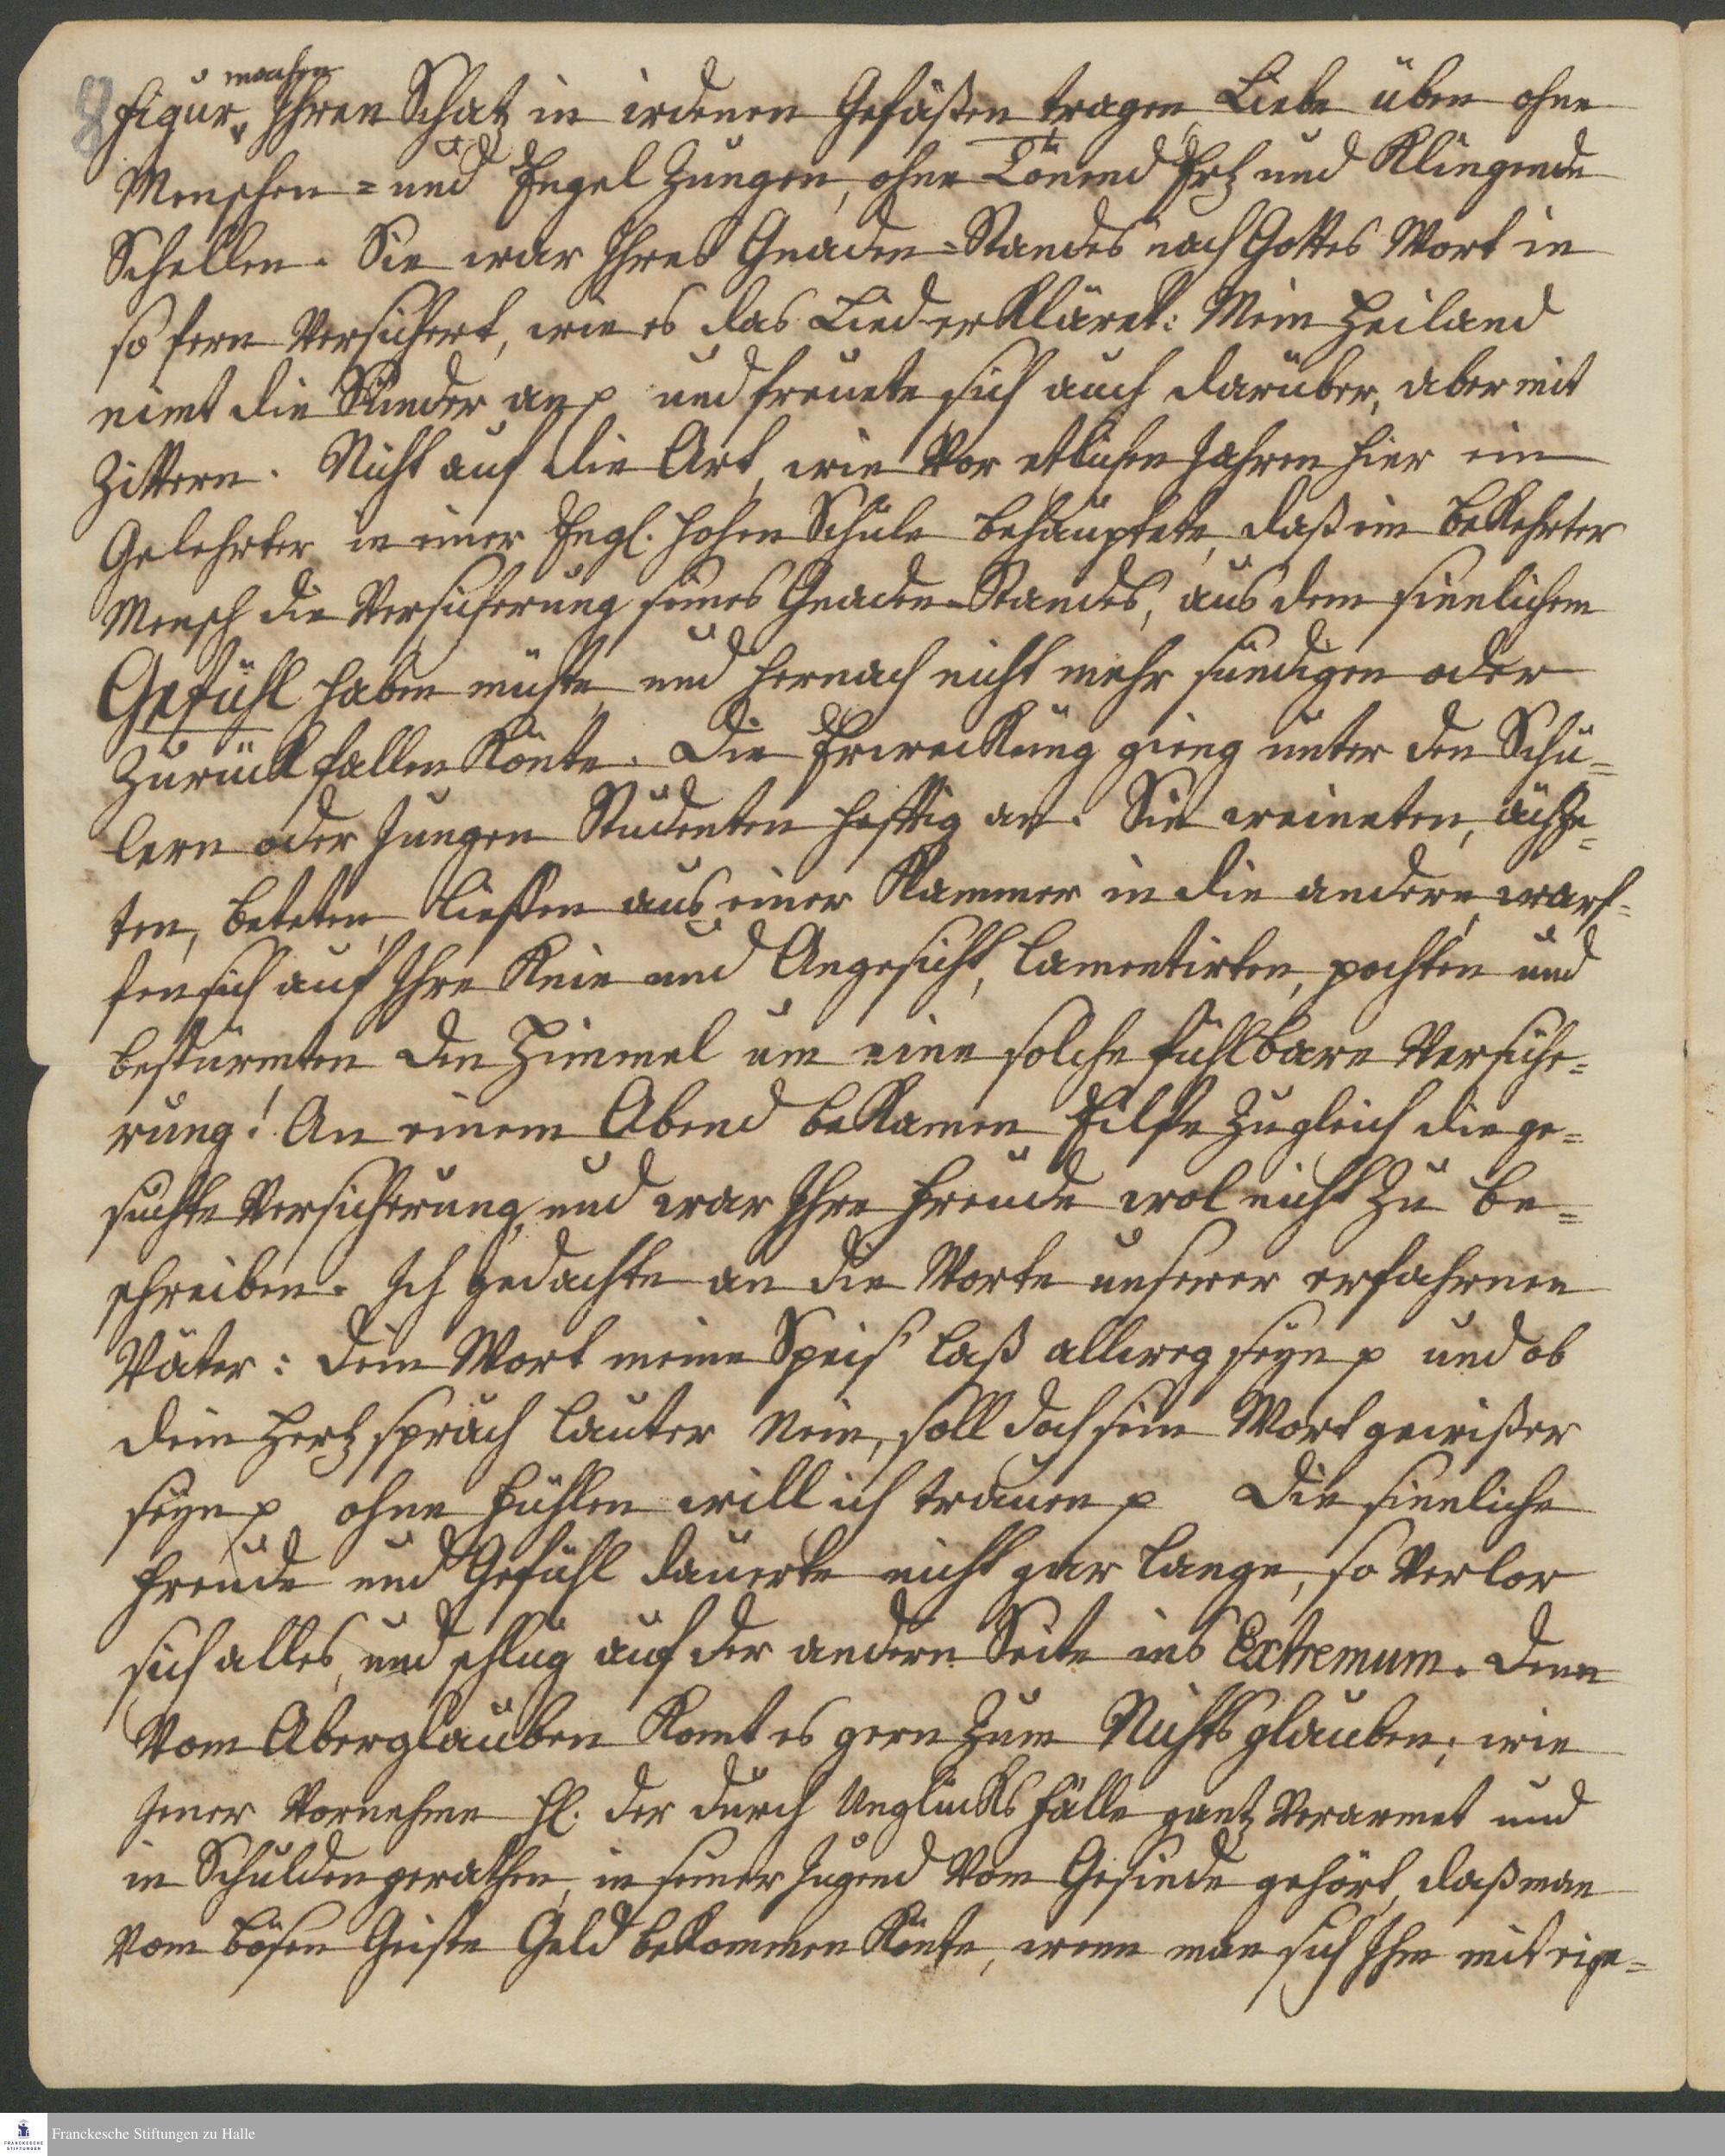 8 Figur machen, Ihren Schatz in irdenen Gefäßen tragen, Liebe üben ohne
Menschen= und Engel Zungen, ohne Tönend Ertz und Klingende
Schellen. Sie war Ihres Gnaden=Standes nach Gottes Wort in
so fern Versichert, wie es das Lied erkläret: Mein Heiland
nimt die Sünder an p und freuete sich auch darüber, aber mit
Zittern. Nicht auf die Art, wie Vor etlichen Jahren hier ein
Gelehrter in einer Engl. hohen Schule behauptete, daß ein beKehrter
Mensch die Versicherung seines Gnaden=Standes, aus dem sinnlichem
Gefühl haben müste, und hernach nicht mehr sündigen oder
Zurück fallen Könte. Die ErweKung gieng unter den Schü=
lern oder Jungen Studenten hefftig an. Sie weineten, ächze=
ten, beteten, lieffen aus einer Kammer in die andere, warf=
fen sich auf Ihre Knie und Angesicht, lamentirten, pochten und
bestürmten den Himmel um eine solche fühlbare Versiche=
rung! An einem Abend beKamen Eilfe Zugleich die ge=
suchte Versicherung, und war Ihre Freude wol nicht Zu be=
schreiben. Ich gedachte an die Worte unserer erfahrnen
Väter: Dein Wort meine Speis laß allweg seyn p und ob
dein Hertz spräch lauter Nein, soll doch sein Wort gewißer
seyn p ohne Fühlen will ich trauen p Die sinnliche
Freude und Gefühl dauerte nicht gar lange, so Verlor
sich alles, und schlug auf der andern Seite ins Extremum. Denn
Vom Aberglauben Komt es gern Zum Nichts glauben; wie
Jener Vornehme H. der durch Unglücks Fälle gantz Verarmet und
in Schulden gerathen, in seiner Jugend Vom Gesinde gehört, daß man
Vom bösen Geiste Geld beKommen Könte, wenn man sich Ihm mit eige=
Franckesche Stiftungen zu Halle
FRANCKESCHE
STIFTUNGEN